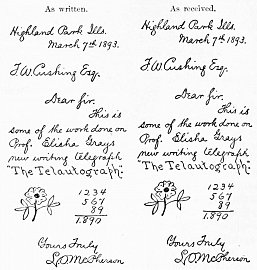 As written.
Highland Park Ills.
March 7th 1893.
F.W. Cushing Esq.
Dear Sir.
This is
some of the work done on
Prof. Elisha Grays
new writing telegraph
"The Telautograph."
1234
567
89
1.890
Yours Truly
L. D. McPherson
As received.
Highland Park Ills.
March 7th 1893.
F.W. Cushing Esq.
Dear Sir.
This is
some of the work done on
Prof. Elisha Grays
new writing telegraph
"The Telautograph."
1234
567
89
1.890
Yours Truly
L. D. McPherson